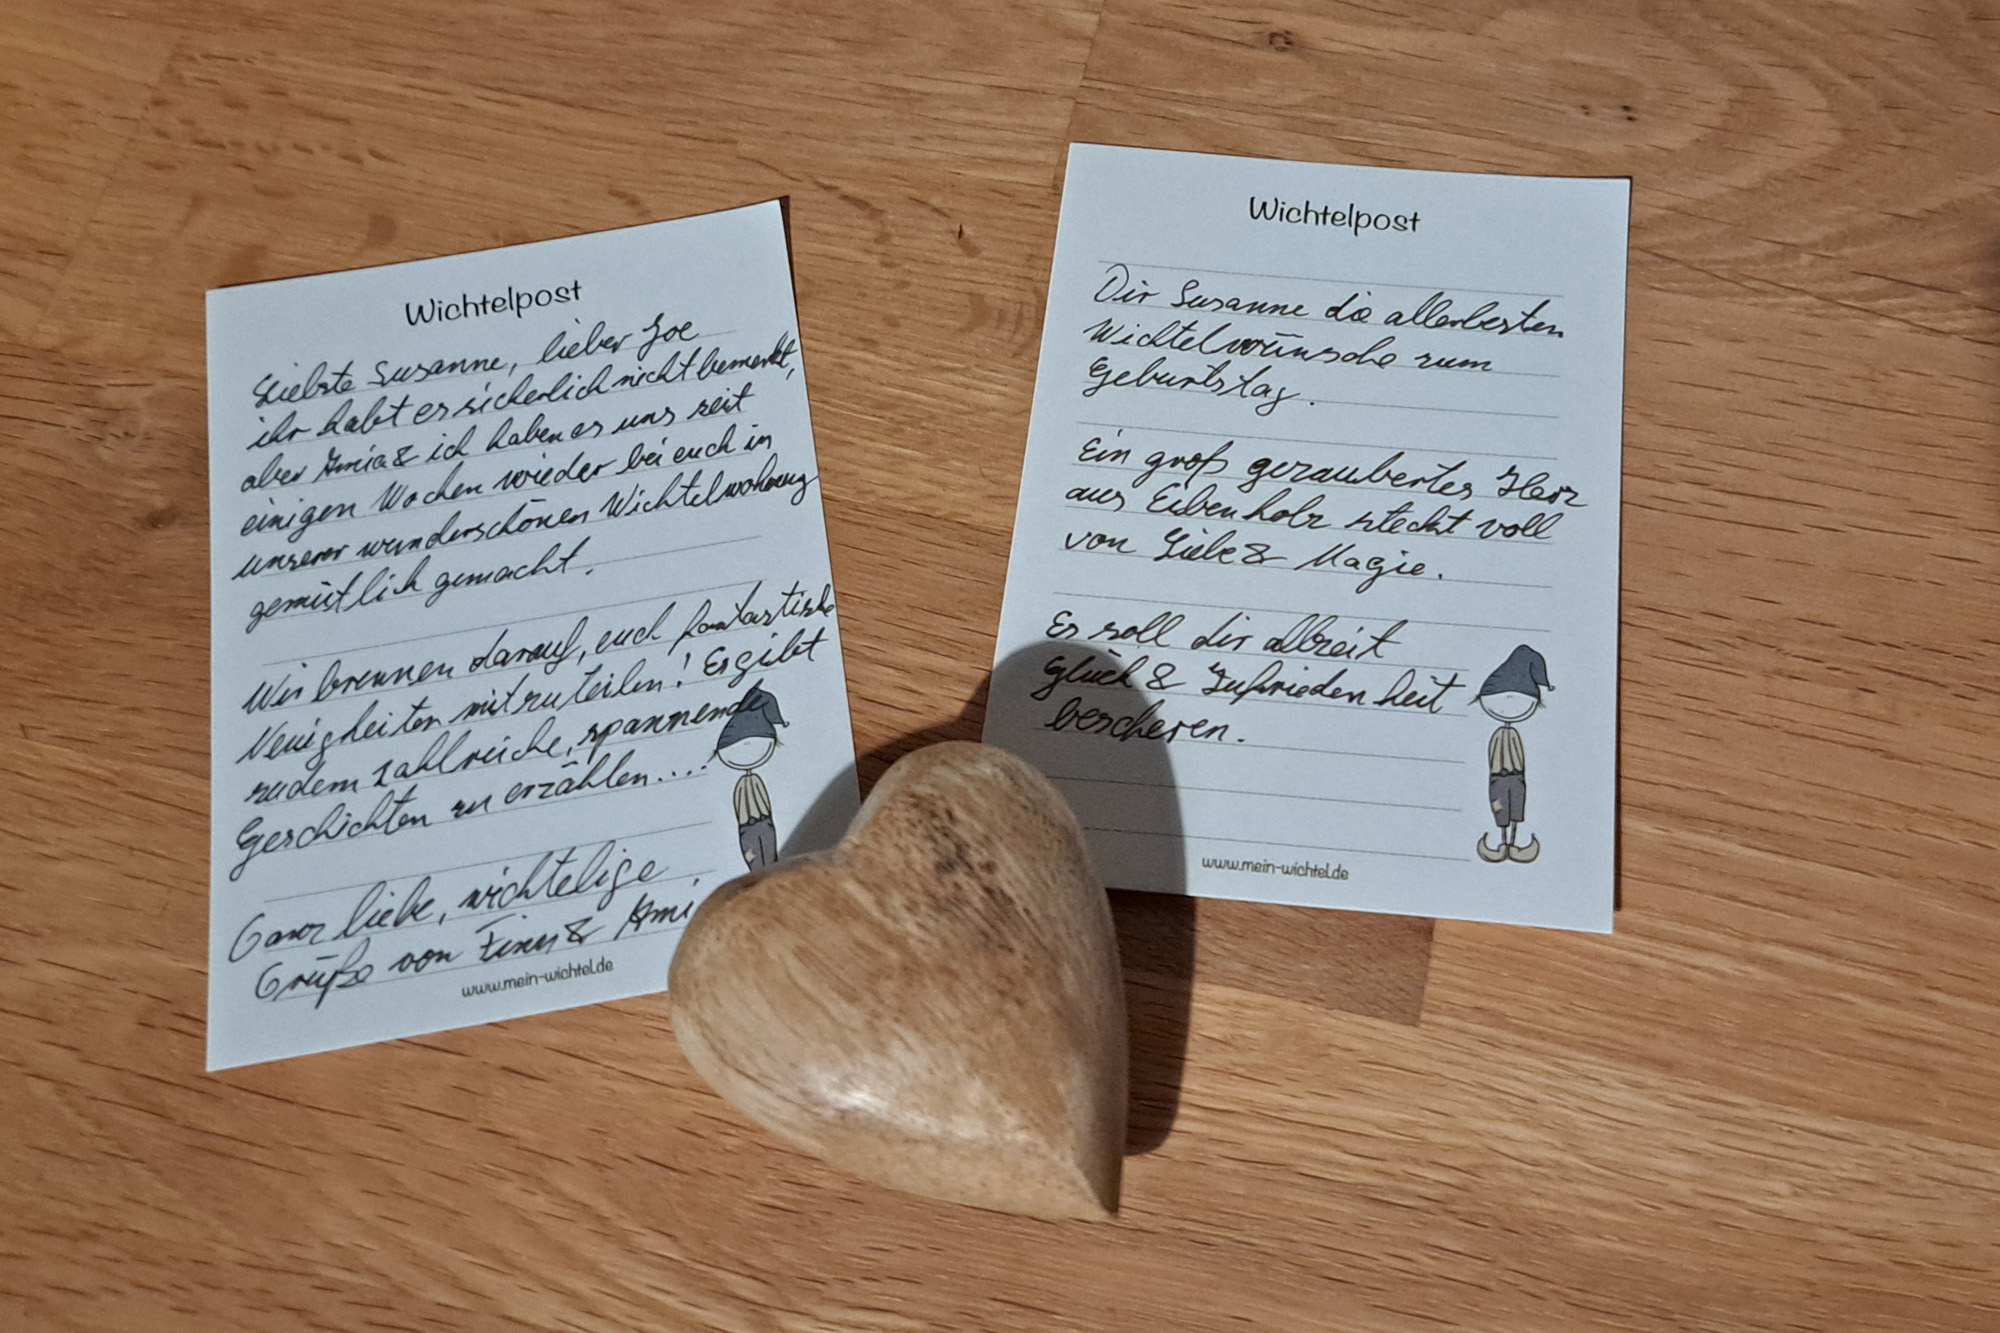 Wichtelpost
Liebste Susanne, lieber Joe
ihr habt es sicherlich nicht bemerkt,
aber Amia & ich haben es uns seit
einigen Wochen wieder bei euch in
unserer wunderschönen Wichtelwohnung
gemütlich gemacht.
Wir brennen darauf, euch fantastische
Neuigkeiten mitzuteilen! Es gibt
zudem zahlreiche, spannende
Geschichten zu erzählen....
Ganz liebe, wichtelige
Grüße von Finn & Ami
www.mein-wichtel.de
Wichtelpost
Dir Susanne die allerbesten
Wichtelwünsche zum
Geburtstag.
Ein groß gezaubertes Herz
aus Eibenholz steckt voll
von Liebe & Magie.
Es soll dir allzeit
Glück & Zufriedenheit
bescheren.
www.mein-wichtel.de